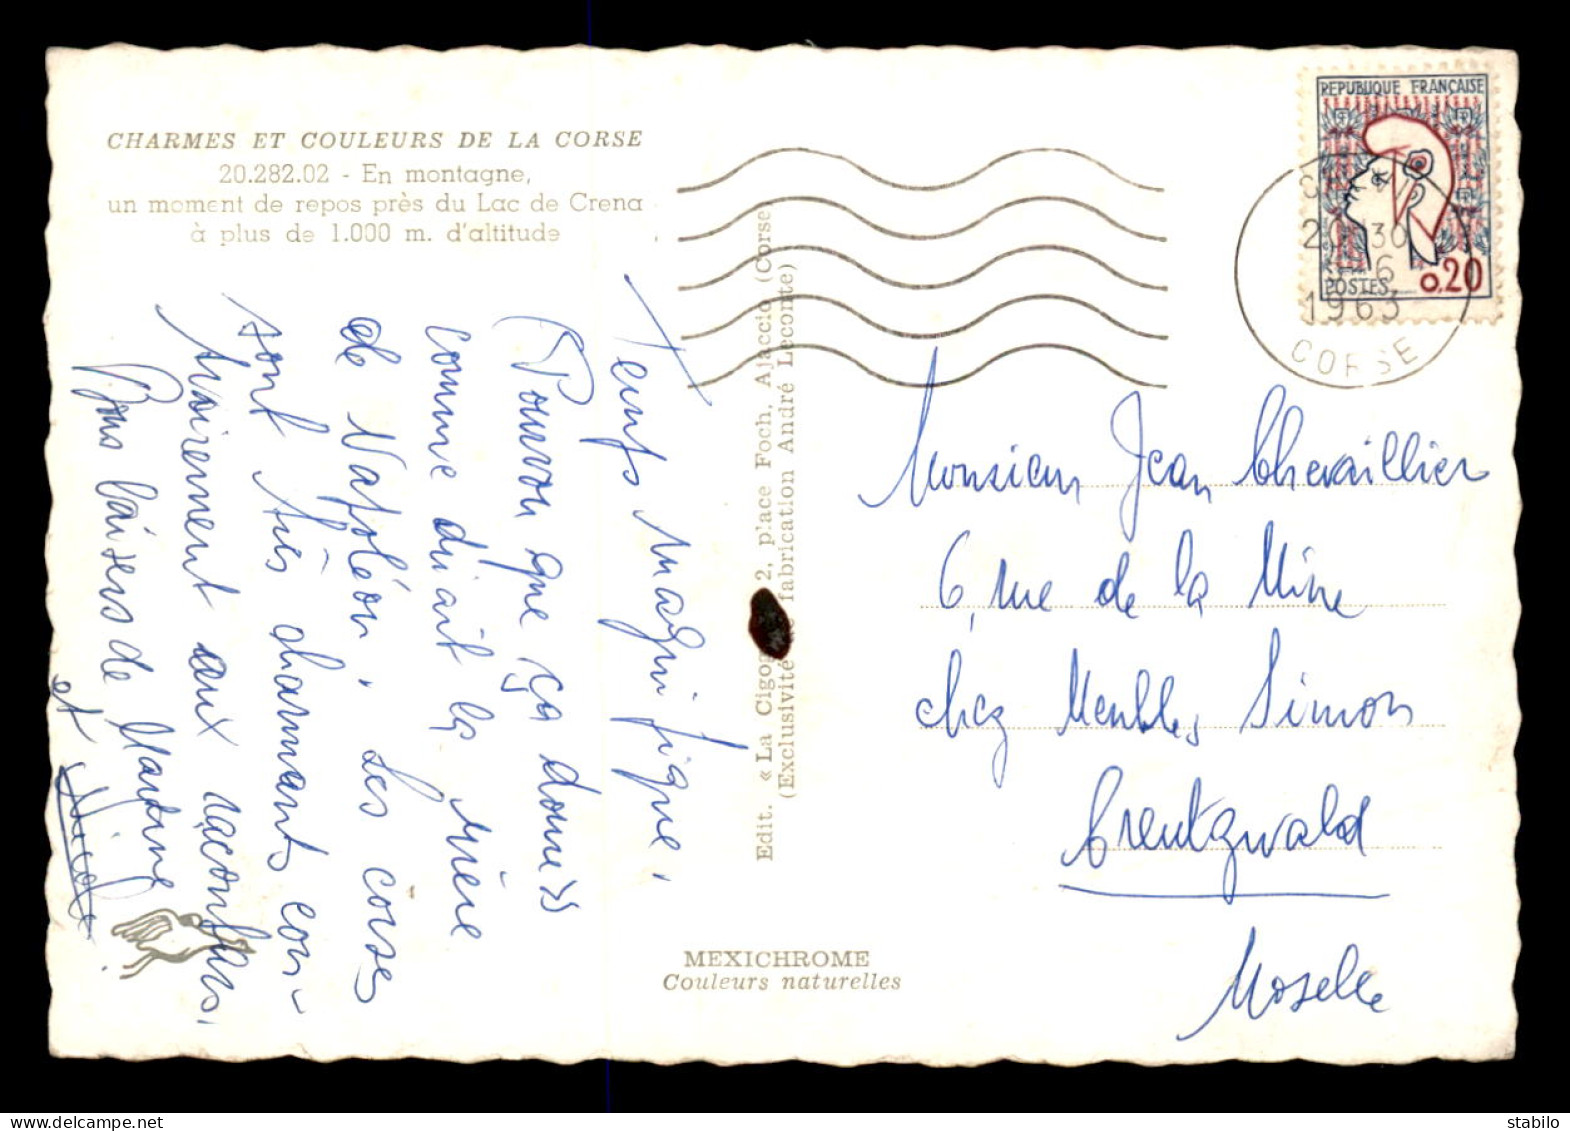 CHARMES ET COULEURS DE LA CORSE
20.282.02 - En montagne,
un moment de repos près du Lac de Crena
à plus de 1.000 m. d'altitude
Temps magnifique,
(Pourvou que ça doure »
comme disait la Mère
de Napoléon. Les corses
sont très charmants con-
trairement aux racontars.
Bons baisers de Martine
et Nicole
Edit. « La Cigogne 2, place Foch, Ajaccio (Corse)
(Exclusivité de fabrication André Leconte)
MEXICHROME
Couleurs naturelles
REPUBLIQUE FRANÇAISE
POSTES 0,20
1963
CORSE
Monsieur Jean Chevaillier
6, rue de la Mine
chez Meubles Simon
Creutzwald
Moselle
delcampe.net
stabilo